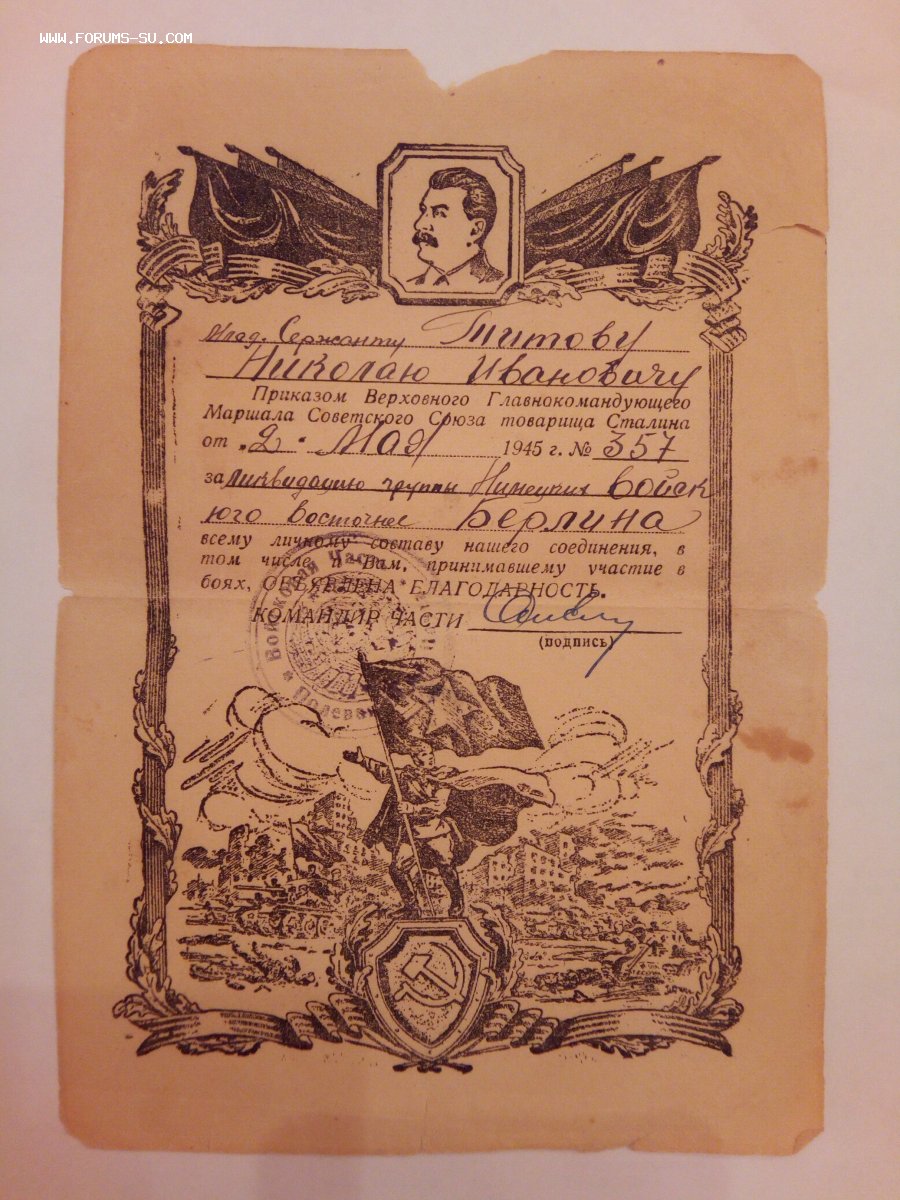 WWW.FORUMS-SU.COM
Млад. Сержанту Титову
Николаю Ивановичу
Приказом Верховного Главнокомандующего
Маршала Советского Союза товарища Сталина
от „2" Мая 1945 г. № 357
за ликвидацию группы Нимецких войск
юго восточнее Берлина
всему личному составу нашего соединения, в
том числе и Вам, принимавшему участие в
боях, ОБЪЯВЛЕНА БЛАГОДАРНОСТЬ.
КОМАНДИР ЧАСТИ
(подпись)
Войсковая Часть
Полевая